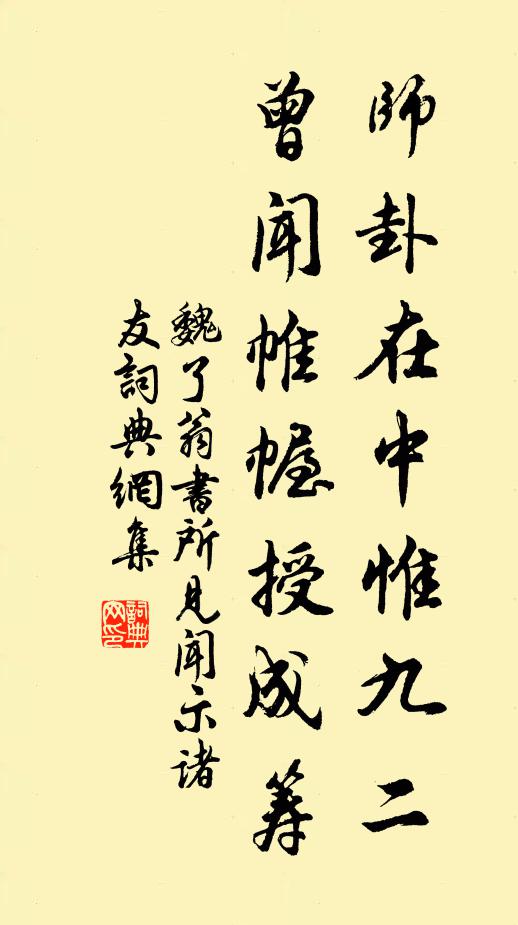 師卦在中惟九二
曾聞帷幄授成筭
魏了翁書所見聞示諸
友詞典網集
詞典
网印